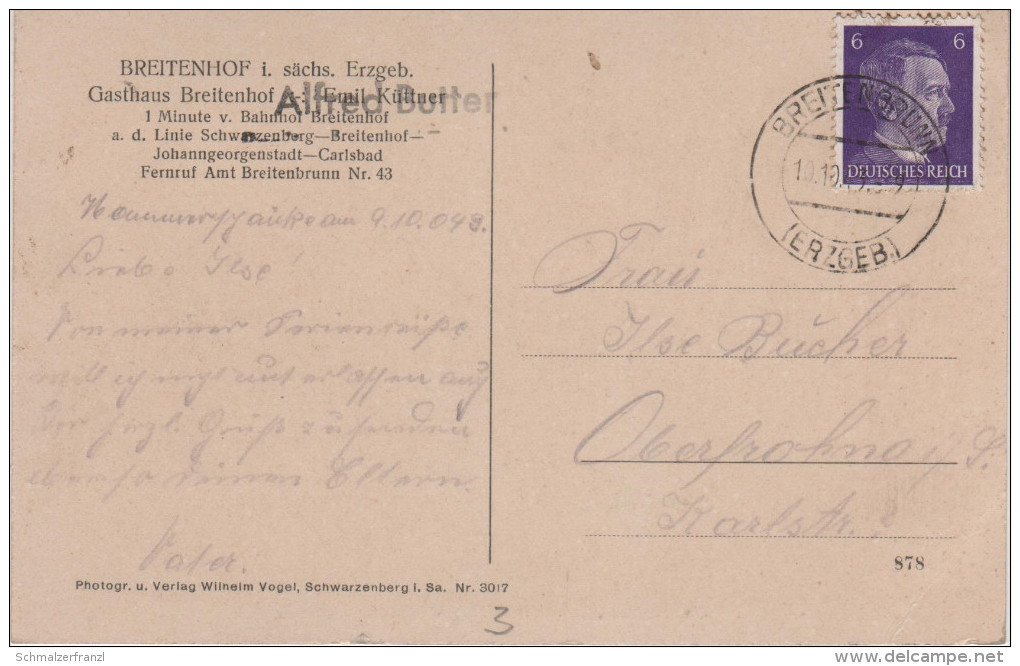 BREITENHOF i. sächs. Erzgeb.
Gasthaus Breitenhof Emil Küttner
Alfred Dotter
1 Minute v. Bahnhof Breitenhof
a. d. Linie Schwarzenberg—Breitenhof—
Johanngeorgenstadt—Carlsbad
Fernruf Amt Breitenbrunn Nr. 43
am 9.10.043.
Liebe Ilse!
Von meiner Ferienreise
will ich nicht unterlassen auch
Dir herzl. Grüße zu senden
ebenso deinen Eltern.
Vater.
Photogr. u. Verlag Wilhelm Vogel, Schwarzenberg i. Sa. Nr. 3017
3
6 6
DEUTSCHES REICH
BREITENBRUNN
10.10.43
(ERZGEB.)
Frau
Ilse Bücher
Oberfrohna i. S.
Karlstr.
878
Schmalzerfranzl
delcampe.net